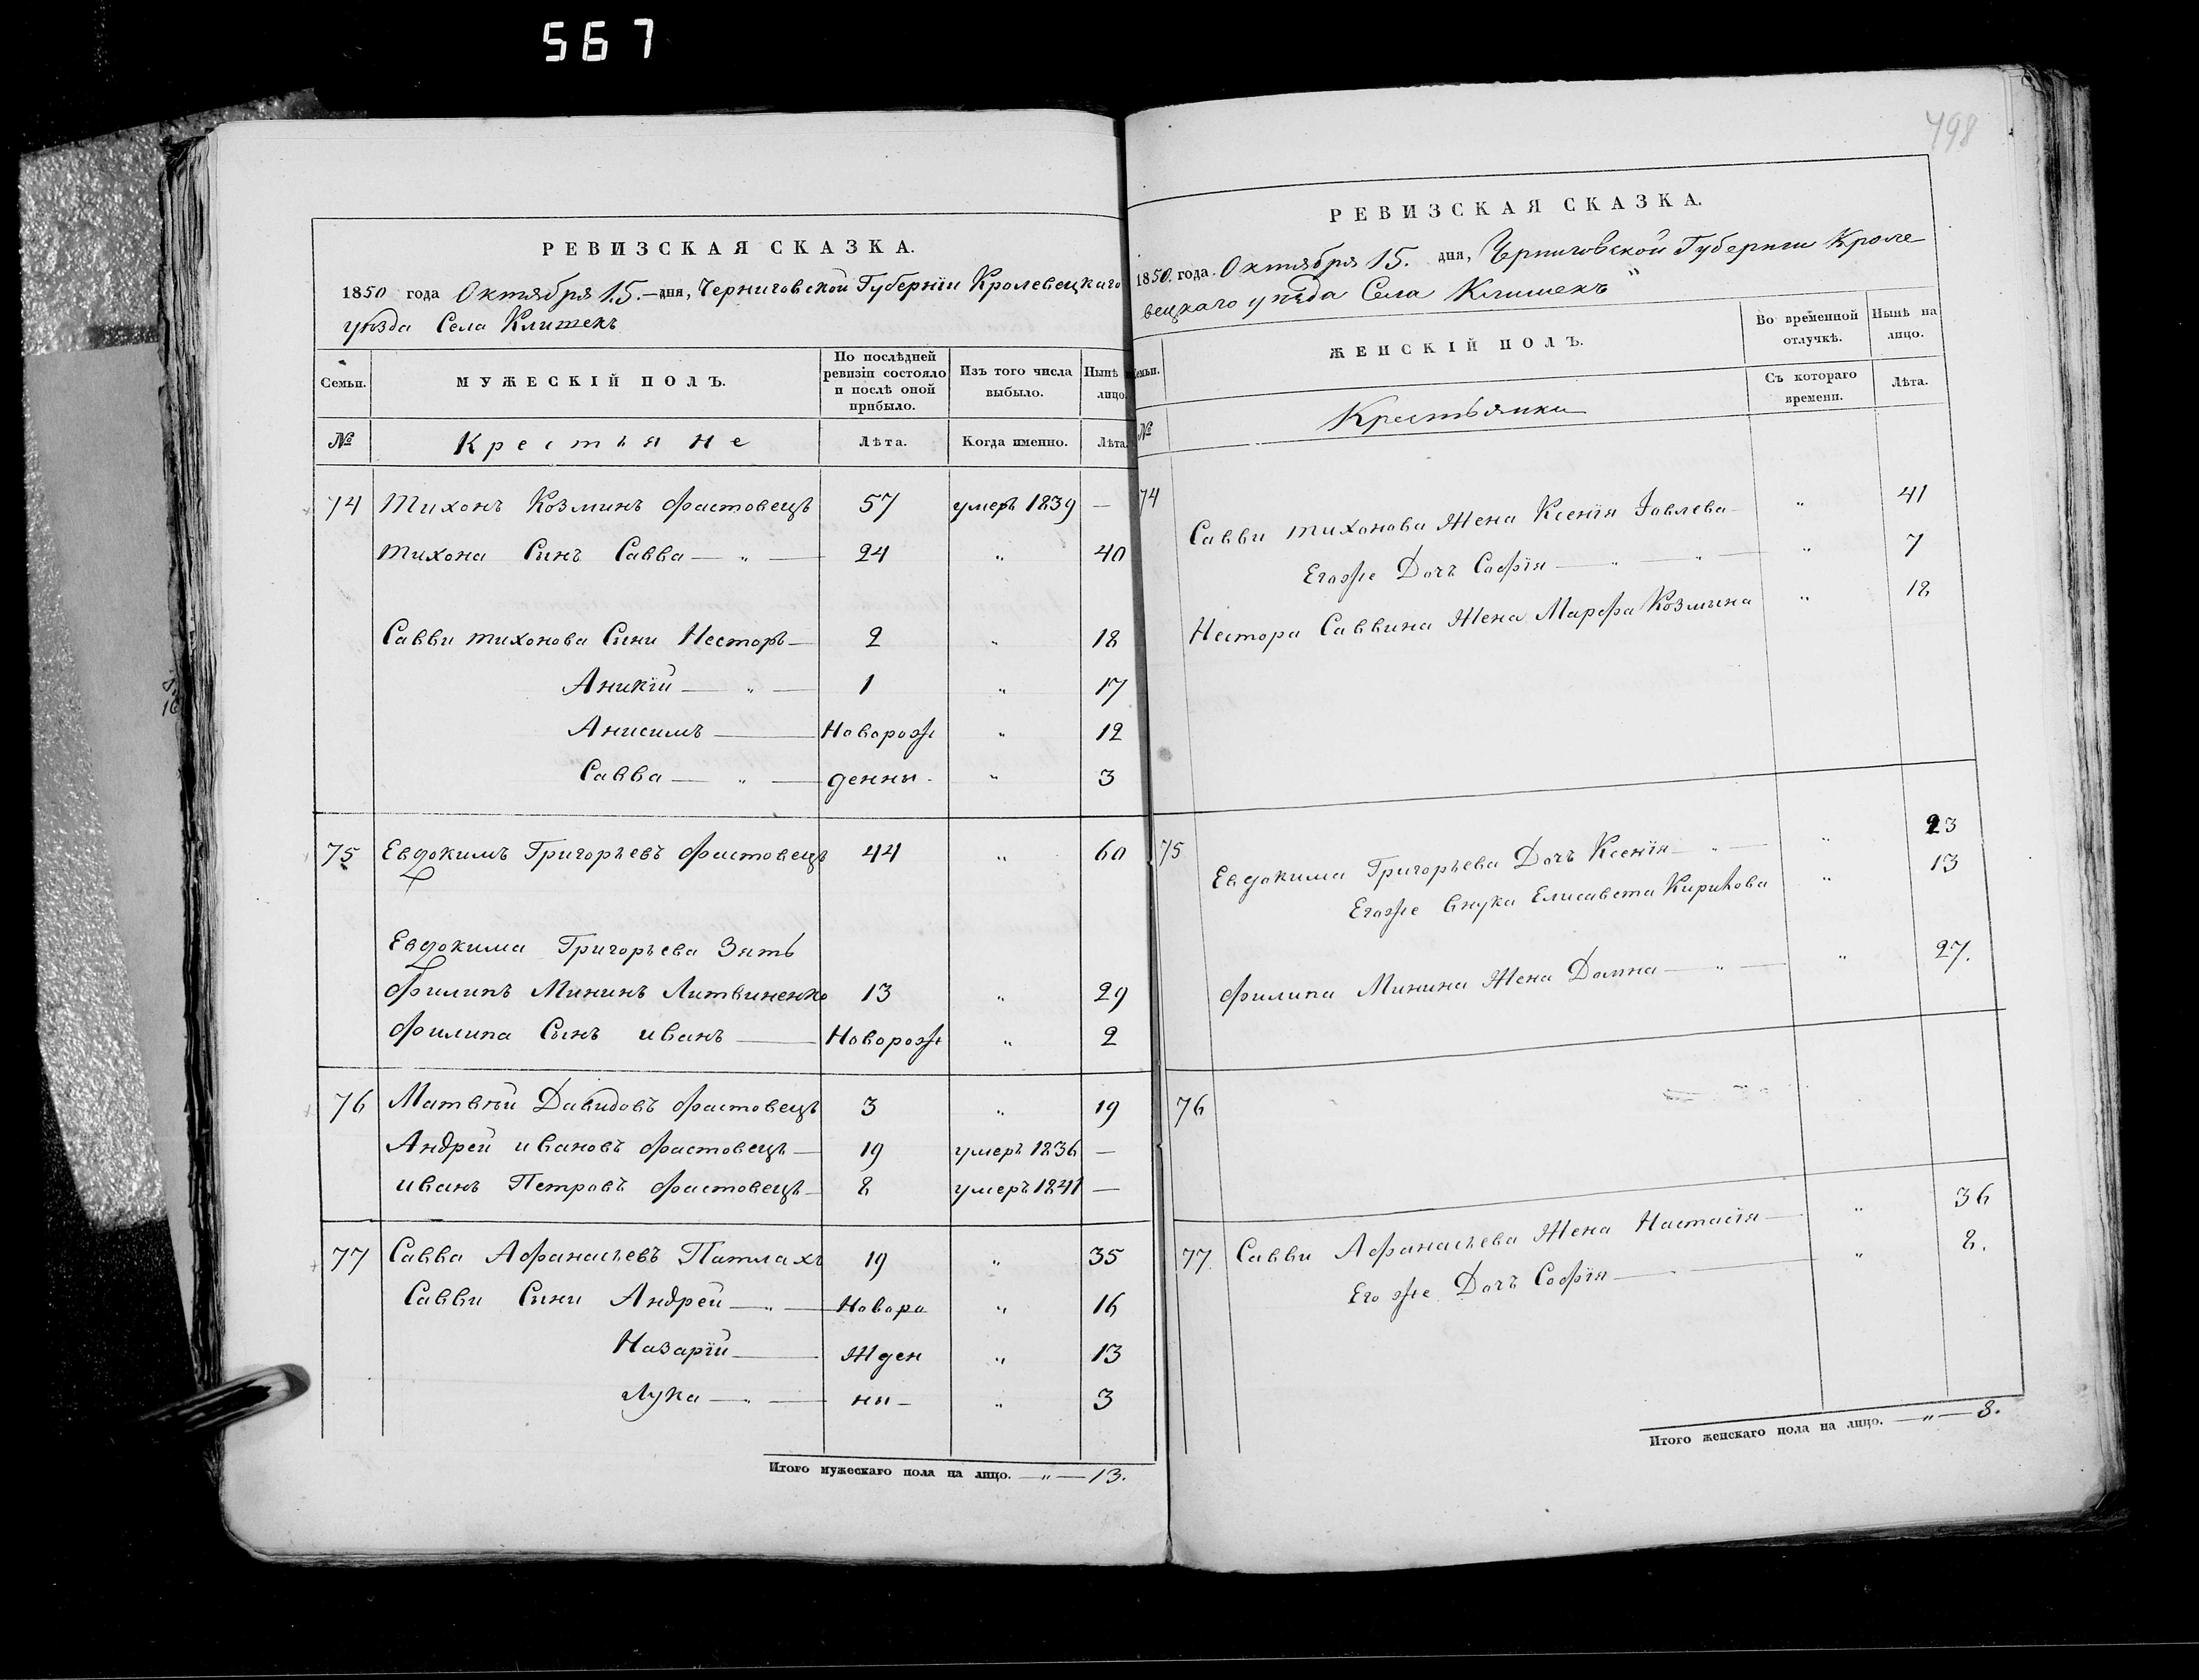 567
798
РЕВИЗСКАЯ СКАЗКА.
1850 года Октября 15.–дня, Черниговской Губерніи Кролевецкаго
уѣзда Села Клишекъ
Семьи.
МУЖЕСКІЙ ПОЛЪ.
По послѣдней ревизіи состояло и послѣ оной прибыло.
Изъ того числа выбыло.
Нынѣ на лицо.
№
Крестьяне
Лѣта.
Когда именно.
Лѣта.
74 Тихонъ Козминъ Фастовецъ 57 умеръ 1839 —
Тихона Синъ Савва — „ — 24 „ 40
Савви Тихонова Сини Несторъ — 2 „ 18
Аникій — „ — 1 „ 17
Анисимъ — Новорож „ 12
Савва — „ — денны - „ 3
75 Евдокимъ Григорьевъ Фастовецъ 44 „ 60
Евдокима Григорьева Зять
Филипъ Мининъ Литвиненко 13 „ 29
Филипа Сынъ иванъ — Новорож „ 2
76 Матвѣй Давидовъ Фастовецъ 3 „ 19
Андрей ивановъ Фастовецъ — 19 умеръ 1836 —
иванъ Петровъ Фастовецъ — 8 умеръ 1841 —
77 Савва Афанасьевъ Патлахъ 19 „ 35
Савви Сини Андрей — „ — Новоро „ 16
Назарій — жден „ 13
Лука — „ — ны – „ 3
Итого мужескаго пола на лицо. — „ — 13.
РЕВИЗСКАЯ СКАЗКА.
1850. года. Октября 15. дня, Черниговской Губерніи Кроле-
вецкаго уѣзда Села Клишекъ „
Семьи.
ЖЕНСКІЙ ПОЛЪ.
Во временной отлучкѣ.
Нынѣ на лицо.
Съ котораго времени.
Лѣта.
№
Крестьянки
74 Савви Тихонова Жена Ксенія Іовлева — „ 41
Егоже Дочъ Софія — „ — „ — „ 7
Нестора Саввина Жена Марфа Козмина „ 18
75 Евдокима Григорьева Дочъ Ксенія — „ — „ 23
Егоже внука Елисавета Кирикова „ 13
Филипа Минина Жена Домна — „ — „ 27.
76
77 Савви Афанасьева Жена Настасія — „ 36
Его же Дочъ Софія — „ 8.
Итого женскаго пола на лицо. — „ — 8.